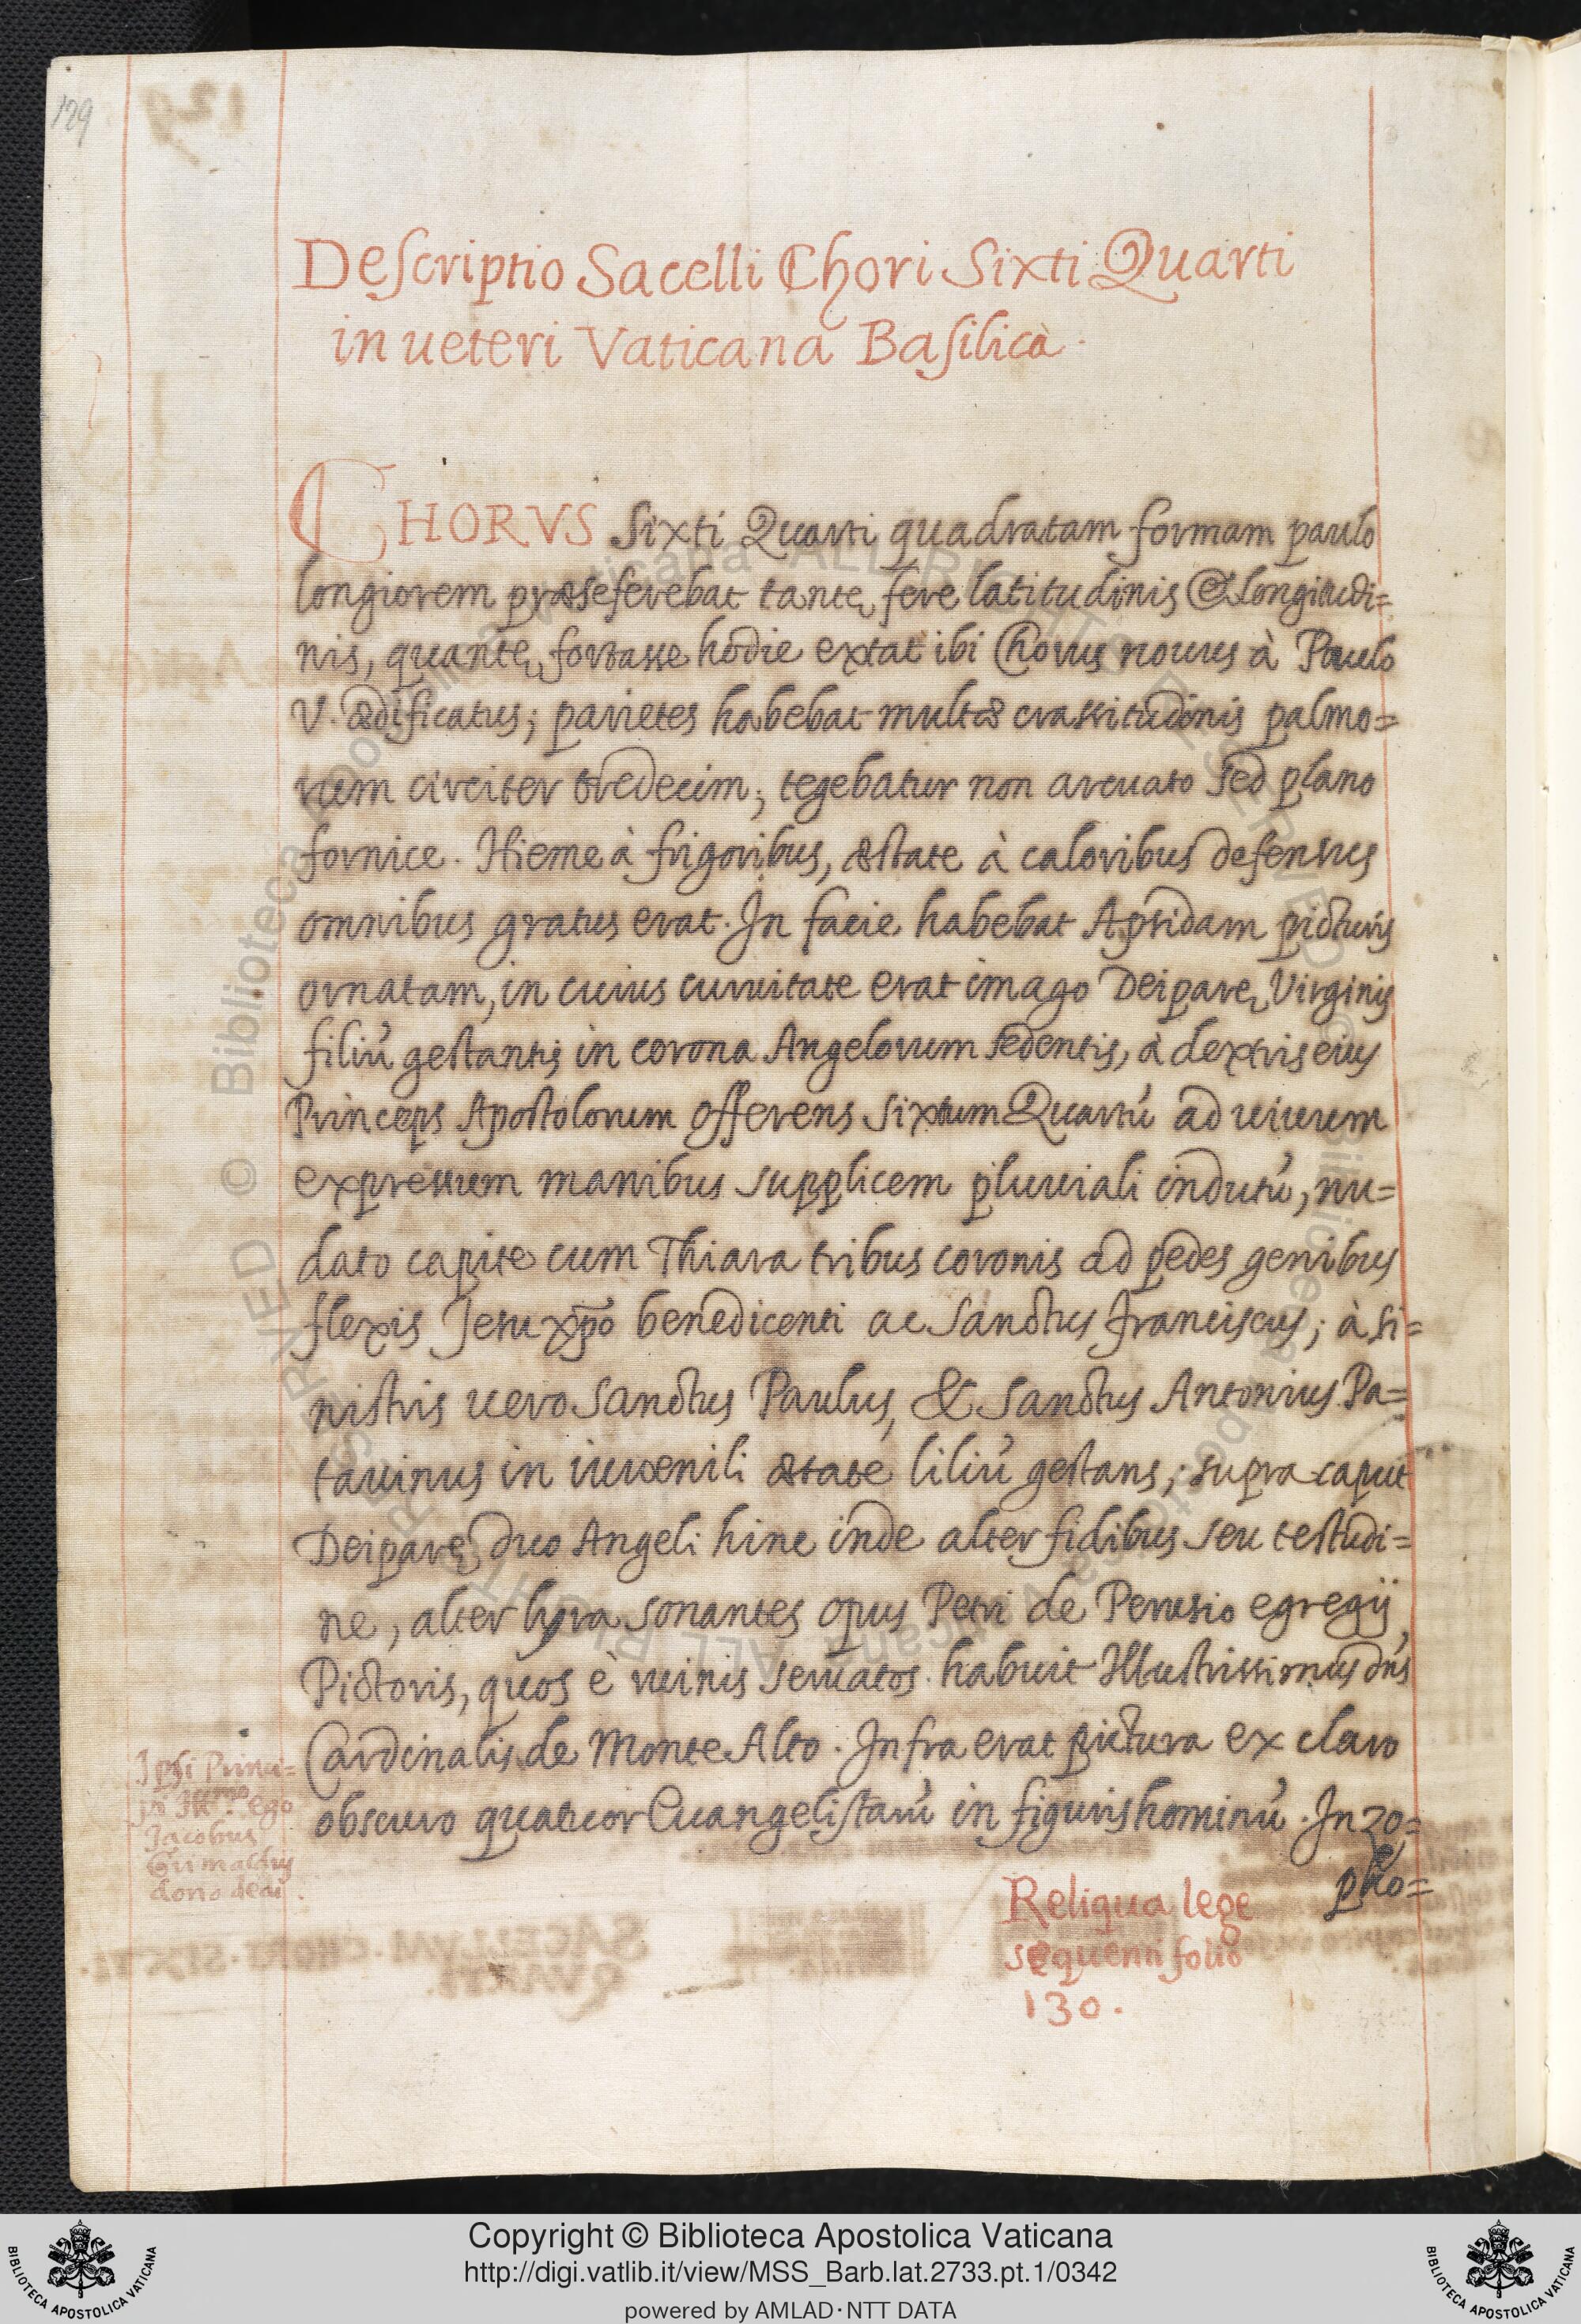 129
Descriptio Sacelli Chori Sixti Quarti
in ueteri Vaticana Basilica.
CHORVS Sixti Quarti quadratam formam paulo
longiorem præseferebat tantę fere latitudinis & longitudi=
nis, quantę fortasse hodie extat ibi Chorus nouus à Paulo
V. ædificatus; parietes habebat multæ crassitudinis palmo=
rum circiter tredecim; tegebatur non arcuato sed plano
fornice. Hieme à frigoribus, æstate à caloribus defensus
omnibus gratus erat. In facie habebat Apsidam picturis
ornatam, in cuius curuitate erat imago Deiparę Virginis
filiú gestantis in corona Angelorum sedentis, à dextris eius
Princeps Apostolorum offerens Sixtum Quartú ad uiuum
expressum manibus supplicem pluuiali indutú, nu=
dato capite cum Thiara tribus coronis ad pedes genibus
flexis Jesu xp̄o benedicenti ac Sanctus Franciscus; à si=
nistris uero Sanctus Paulus, & Sanctus Antonius Pa=
tauinus in iuuenili ætate liliú gestans; supra caput
Deiparę duo Angeli hinc inde alter fidibus seu testudi=
ne, alter lyra sonantes opus Petri de Perusio egregij
Pictoris, quos è ruinis seruatos habuit Illustrissimus dn̄s
Cardinalis de Monte Alto. Infra erat pictura ex claro
obscuro quatuor Euangelistarú in figuris hominú. In zo=
pho=
Ipsi Princi=
pi Ill.mo ego
Jacobus
Grimaldus
dono dedi.
Reliqua lege
sequenti folio
130.
Copyright © Biblioteca Apostolica Vaticana
http://digi.vatlib.it/view/MSS_Barb.lat.2733.pt.1/0342
powered by AMLAD·NTT DATA
BIBLIOTECA APOSTOLICA VATICANA
BIBLIOTECA APOSTOLICA VATICANA